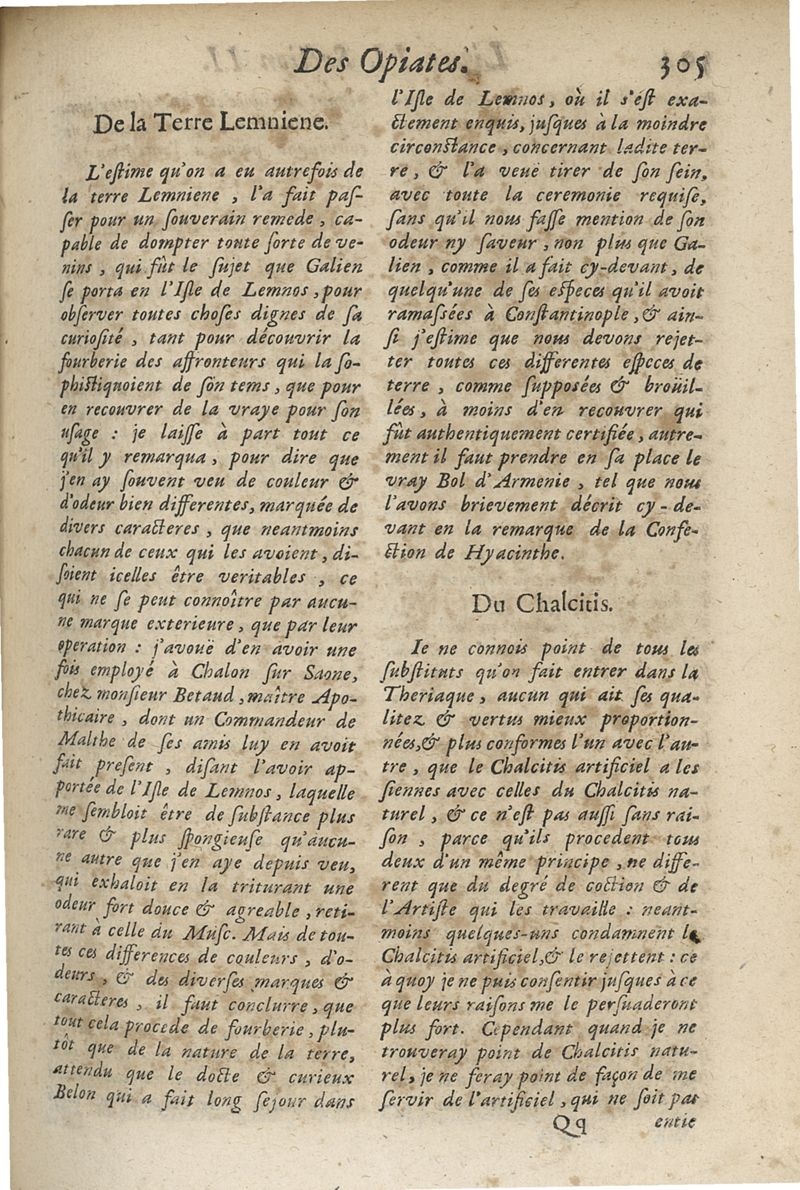 Des Opiates. 305
De la Terre Lemniene.
L'eſtime qu'on a eu autrefois de
la terre Lemniene , l'a fait paſ-
ſer pour un ſouverain remede , ca-
pable de dompter toute ſorte de ve-
nins , qui fût le ſujet que Galien
ſe porta en l'Iſle de Lemnos , pour
obſerver toutes choſes dignes de ſa
curioſité , tant pour découvrir la
fourberie des affronteurs qui la ſo-
phiſtiquoient de ſon tems , que pour
en recouvrer de la vraye pour ſon
uſage : je laiſſe à part tout ce
qu'il y remarqua , pour dire que
j'en ay ſouvent veu de couleur &
d'odeur bien differentes, marquée de
divers caracteres , que neantmoins
chacun de ceux qui les avoient , di-
ſoient icelles être veritables , ce
qui ne ſe peut connoître par aucu-
ne marque exterieure , que par leur
operation : j'avouë d'en avoir une
fois employé à Chalon ſur Saone,
chez monſieur Betaud , maître Apo-
thicaire , dont un Commandeur de
Malthe de ſes amis luy en avoit
fait preſent , diſant l'avoir ap-
portée de l'Iſle de Lemnos , laquelle
me ſembloit être de ſubſtance plus
rare & plus ſpongieuſe qu'aucu-
ne autre que j'en aye depuis veu,
qui exhaloit en la triturant une
odeur fort douce & agreable , reti-
rant à celle du Muſc. Mais de tou-
tes ces differences de couleurs , d'o-
deurs , & des diverſes marques &
caracteres , il faut conclurre , que
tout cela procede de fourberie , plu-
tôt que de la nature de la terre,
attendu que le docte & curieux
Belon qui a fait long ſejour dans
l'Iſle de Lemnos , où il s'eſt exa-
ctement enquis, juſques à la moindre
circonſtance , concernant ladite ter-
re , & l'a veuë tirer de ſon ſein,
avec toute la ceremonie requiſe,
ſans qu'il nous faſſe mention de ſon
odeur ny ſaveur , non plus que Ga-
lien , comme il a fait cy-devant , de
quelqu'une de ſes eſpeces qu'il avoit
ramaſſées à Conſtantinople , & ain-
ſi j'eſtime que nous devons rejet-
ter toutes ces differentes eſpeces de
terre , comme ſuppoſées & broüil-
lées , à moins d'en recouvrer qui
fût authentiquement certifiée , autre-
ment il faut prendre en ſa place le
vray Bol d'Armenie , tel que nous
l'avons brievement décrit cy-de-
vant en la remarque de la Confe-
ction de Hyacinthe.
Du Chalcitis.
Ie ne connois point de tous les
ſubſtituts qu'on fait entrer dans la
Theriaque , aucun qui ait ſes qua-
litez & vertus mieux proportion-
nées,& plus conformes l'un avec l'au-
tre , que le Chalcitis artificiel a les
ſiennes avec celles du Chalcitis na-
turel , & ce n'eſt pas auſſi ſans rai-
ſon , parce qu'ils procedent tous
deux d'un même principe , ne diffe-
rent que du degré de coction & de
l'Artiſte qui les travaille : neant-
moins quelques-uns condamnent le
Chalcitis artificiel,& le rejettent : ce
à quoy je ne puis conſentir juſques à ce
que leurs raiſons me le perſuaderont
plus fort. Cependant quand je ne
trouveray point de Chalcitis natu-
rel , je ne feray point de façon de me
ſervir de l'artificiel , qui ne ſoit pas
Qq entie